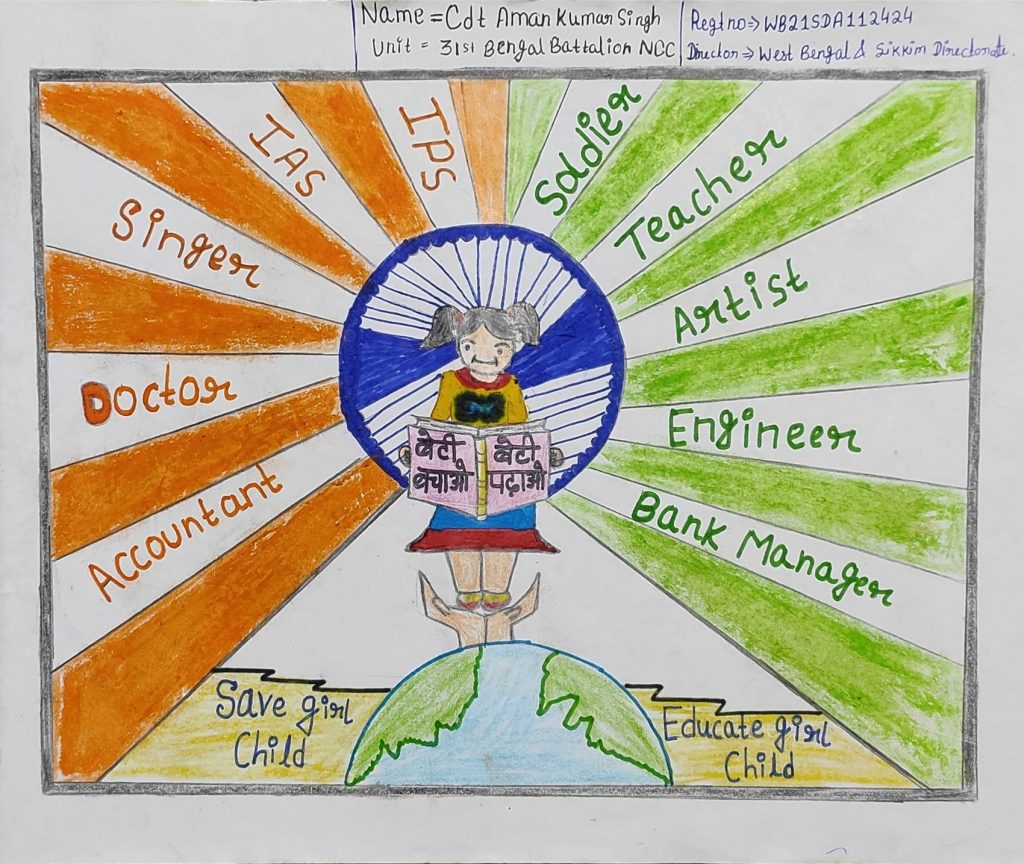 Name = Cdt Aman Kumar Singh
Unit = 31st Bengal Battalion NCC
Regt no => WB21SDA112424
Director => West Bengal & Sikkim Directorate.
IAS
IPS
Soldier
Teacher
Singer
Artist
Doctor
Engineer
Accountant
Bank Manager
बेटी
बचाओ
बेटी
पढ़ाओ
Save girl
Child
Educate girl
Child